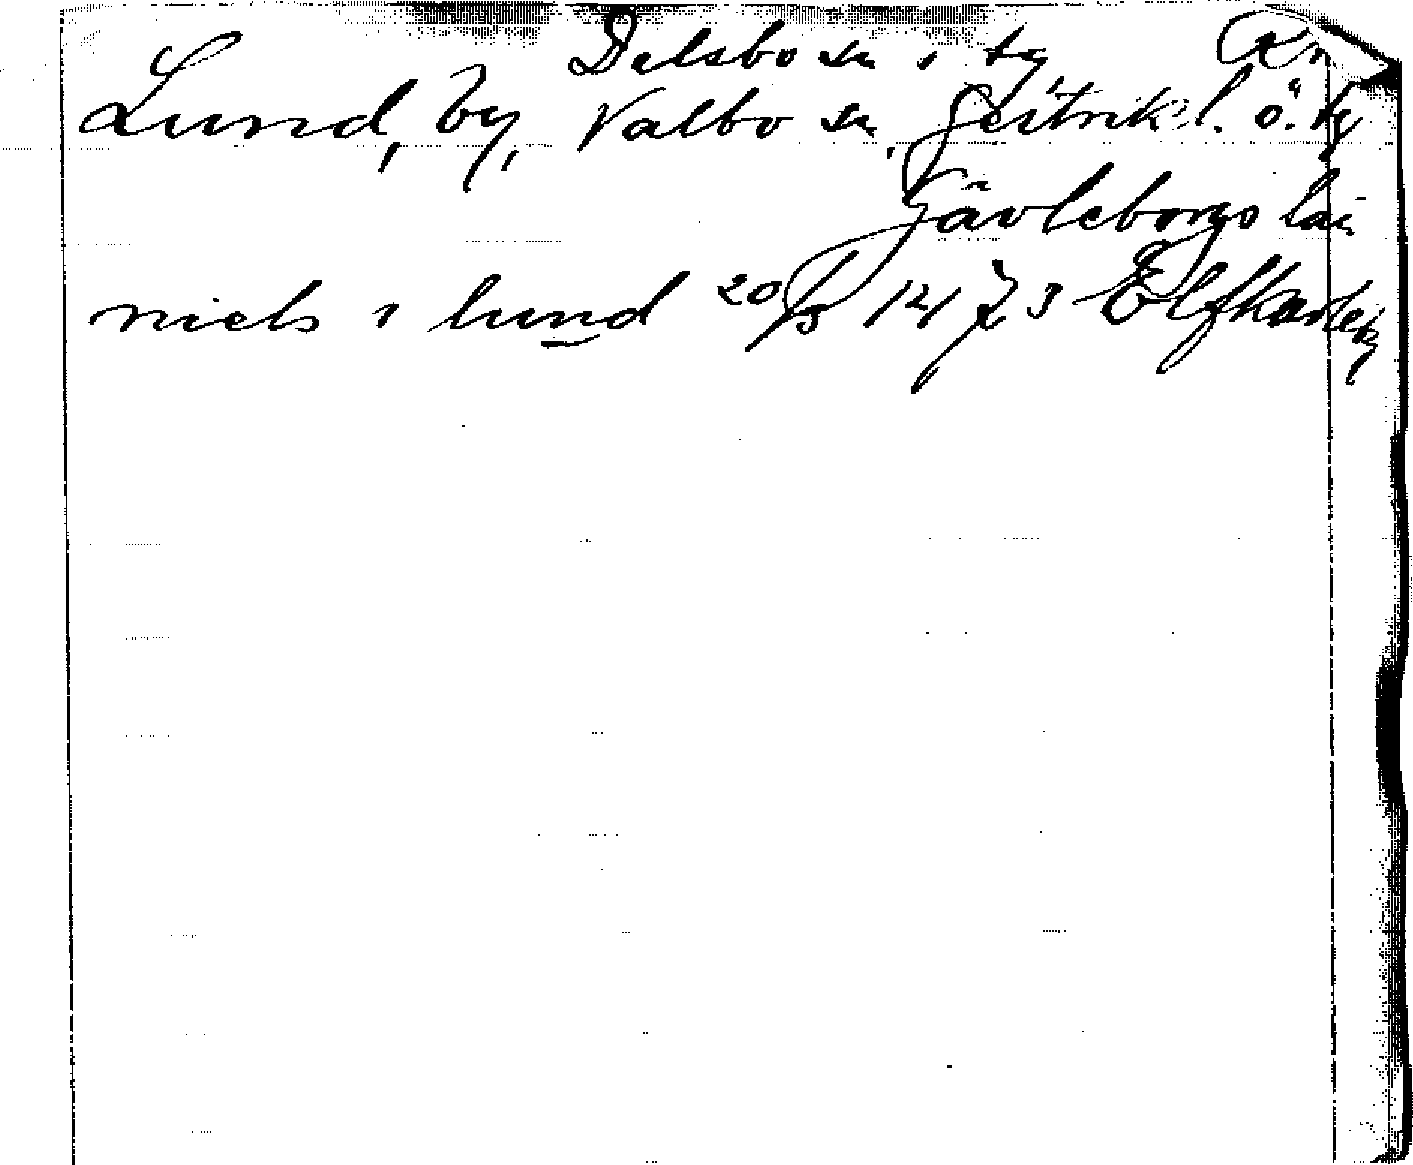 Delsbo sn i tg
Lund, by, Valbo sn, Gestrikl. ö. tg
Gävleborgs län
niels i lund 20/3 1473 Elfkarleby